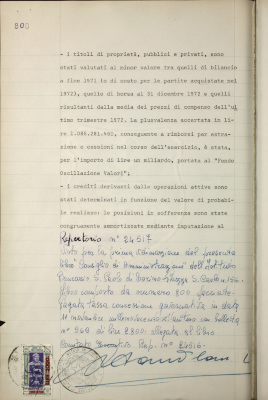 800
- i titoli di proprietà, pubblici e privati, sono
stati valutati al minor valore tra quelli di bilancio
a fine 1971 (a di costo per le partite acquistate nel
1972), quello di borsa al 31 dicembre 1972 e quelli
risultanti dalla media dei prezzi di compenso dell'ul
timo trimestre 1972. La plusvalenza accertata in li=
re 1.088.281.450, conseguente a rimborsi per estra=
zione e cessioni nel corso dell'esercizio, è stata,
per l'importo di lire un miliardo, portata al "Fondo
Oscillazione Valori";
- i crediti derivanti dalle operazioni attive sono
stati determinati in funzione del valore di probabi=
le realizzo; le posizioni in sofferenza sono state
congruamente ammortizzate mediante imputazione al
Repertorio n° 24517
Visto per la prima vidimazione del presente
libro Consiglio di Amministrazione dell'Istituto
Bancario S. Paolo di Torino Piazza S. Carlo n. 156
libro composto da numero 800 facciate
pagata tassa concessione governativa in data
11 novembre
n° 949 di lire 2.200: allegata al libro
Comitato Esecutivo Rep. n° 24516.